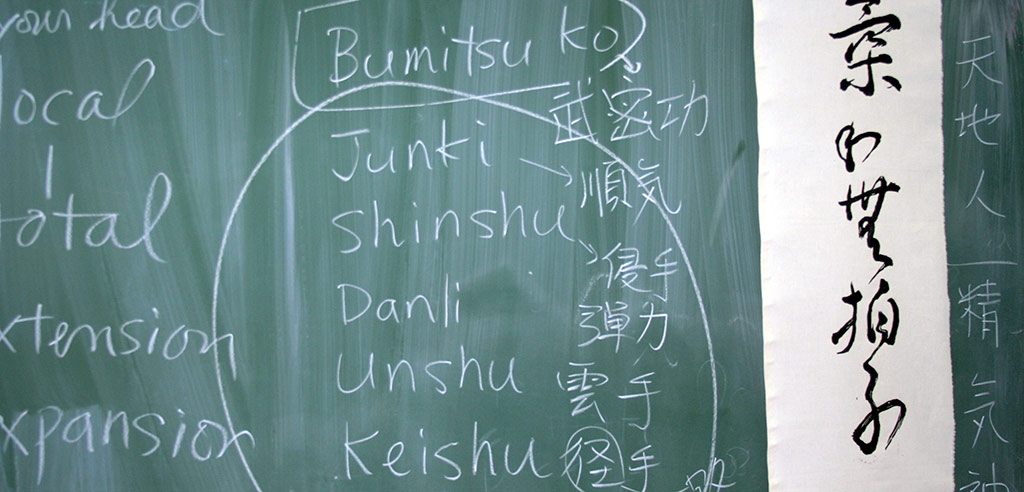 your head
local
total
xtension
xpansion
Bumitsu ko
武密功
Junki → 順気
Shinshu 侵手
Danli 彈力
Unshu 雲手
Keishu 径手
無拍子
天地人
精気神